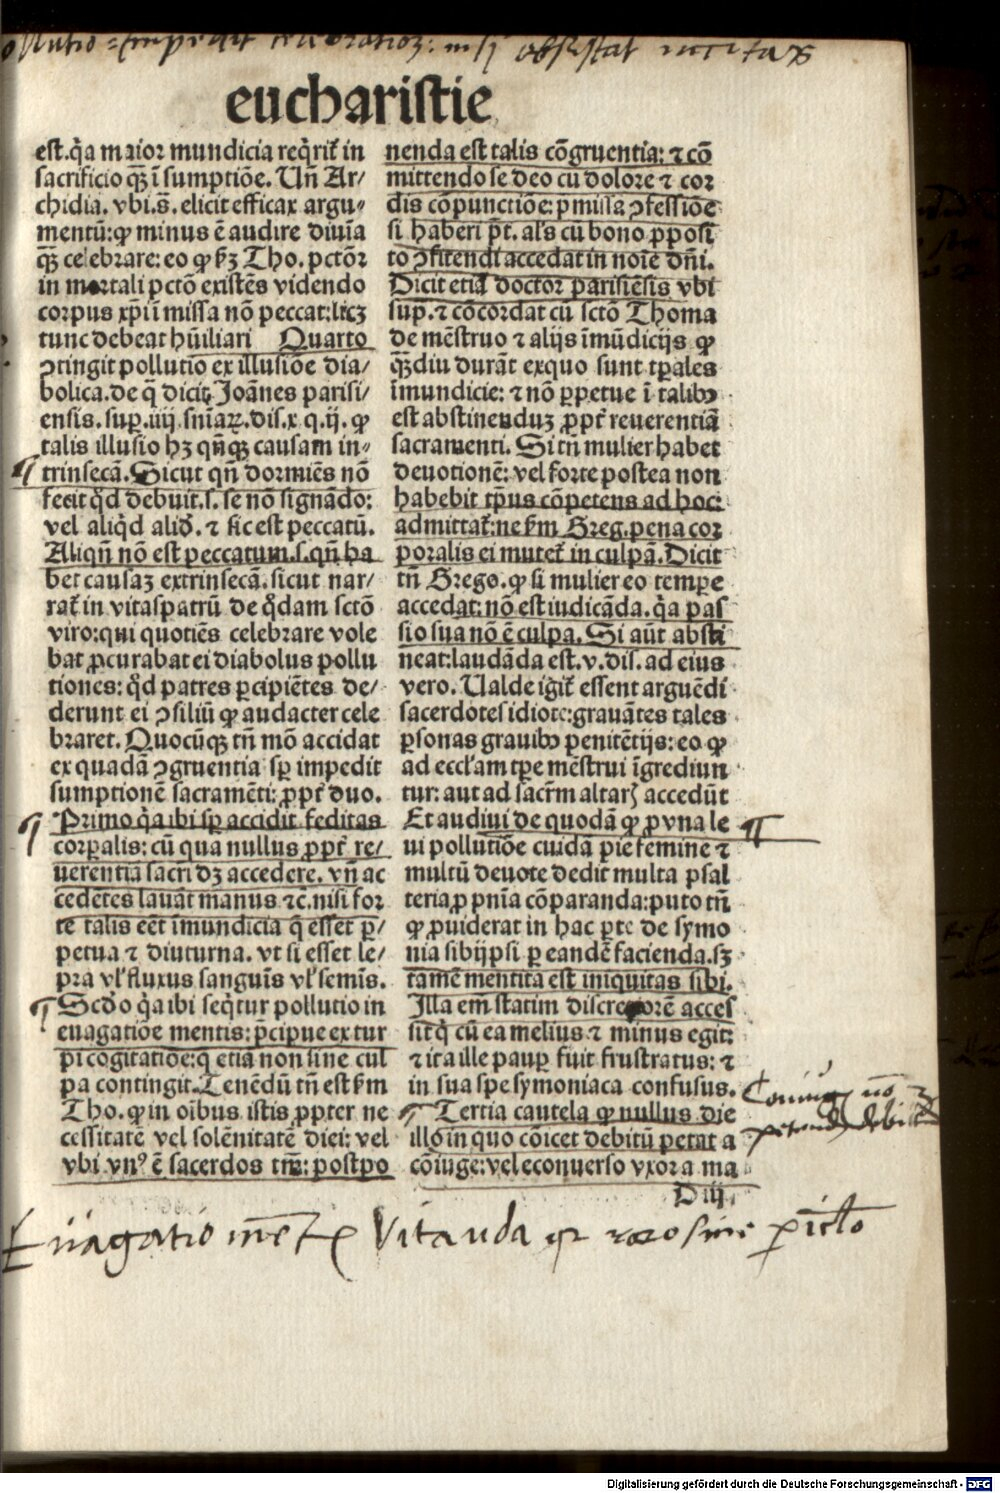 eucharistie
est. q̄a maior mundicia req̄rit̄ in
sacrificio qꝫ̄ ī sumptiōe. Un̄ Ar/
chidia. vbi.s̄. elicit efficax argu⸗
mentū: ꝙ minus ē audire diuīa
qꝫ̄ celebrare: eo ꝙ ẜꝫ Tho. pctōꝛ
in mortali pctō existēs videndo
corpus xp̄i ī missa nō peccat: licꝫ
tunc debeat hūiliari Quarto
ꝯtingit pollutio ex illusiōe dia/
bolica. de q̄ dicit̄ Joānes parisi/
ensis. suꝑ. iiij sn̄iaꝝ. dis. x q. ij. ꝙ
talis illusio hꝫ qn̄qꝫ causam in⸗
trinsecā. Sicut qn̄ dormiēs nō
fecit q̄d debuit. s. se nō signādo:
vel aliq̄d aliđ. ⁊ sic est peccatū.
Aliqn̄ nō est peccatum. s. qn̄ ha
bet causaꝫ extrinsecā. sicut nar/
rat̄ in vitaspatrū de q̄dam sctō
viro: qui quotiēs celebrare vole
bat ꝓcurabat ei diabolus pollu
tiones: q̄d patres ꝑcipiētes de/
derunt ei ꝯsiliū ꝙ audacter cele
braret. Quocūqꝫ tn̄ mō accidat
ex quadā ꝯgruentia sꝑ impedit
sumptionē sacramēti: ꝓpt̄ duo.
Primo q̄a ibi sꝑ accidit feditas
corꝑalis: cū qua nullus ꝓpt̄ re/
uerentiā sacri dꝫ accedere. vn̄ ac
cedētes lauāt manus ⁊c̄. nisi for
te talis eēt īmundicia q̄ esset ꝑ/
petua ⁊ diuturna. vt si esset le/
pra vl̓ fluxus sanguīs vl̓ semīs.
Scđo q̄a ibi seq̄tur pollutio in
euagatiōe mentis: p̄cipue ex tur
pi cogitatiōe: q̄ etiā non sine cul
pa contingit. Tenēdū tn̄ est ẜm
Tho. ꝙ in oībus istis ꝓpter ne
cessitatē vel solēnitatē diei: vel
vbi vnꝰ ē sacerdos tm̄: postpo
nenda est talis cōgruentia: ⁊ cō
mittendo se deo cū dolore ⁊ cor
dis cōpunctiōe: p̄missa ꝯfessiōe
si haberi p̄t. al̓s cū bono ꝓposi
to ꝯfitendi accedat in noīe dn̄i.
Dicit etiā doctor parisiēsis vbi
suꝑ. ⁊ cōcordat cū sctō Thoma
de mēstruo ⁊ alijs īmūdicijs ꝙ
qꝫ̄diu durāt exquo sunt tꝑales
īmundicie: ⁊ nō ꝑpetue ī talibꝰ
est abstinenduꝫ ꝓpt̄ reuerentiā
sacramenti. Si tn̄ mulier habet
deuotionē: vel forte postea non
habebit tp̄us cōpetens ad hoc:
admittat̄: ne ẜm Greg. pena cor
poralis ei mutet̄ in culpā. Dicit
tn̄ Grego. ꝙ si mulier eo tempe
accedat: nō est iudicāda. q̄a pas
sio sua nō ē culpa. Si aūt absti
neat: laudāda est. v. dis. ad eius
vero. Ualde igit̄ essent arguēdi
sacerdotes idiote: grauātes tales
ꝑsonas grauibꝰ penitētijs: eo ꝙ
ad eccl̓am tꝑe mēstrui īgrediun
tur: aut ad sacr̄m altarꝭ accedūt
Et audiui de quodā ꝙ ꝓ vna le
ui pollutiōe cuidā pie femine ⁊
multū deuote dedit multa psal
teria ꝓ pn̄ia cōparanda: puto tn̄
ꝙ ꝓuiderat in hac ꝑte de symo
nia sibijpsi ꝑ eandē facienda. sꝫ
tamē mentita est iniquitas sibi.
Illa em̄ statim discretorē acces
sit q̄ cū ea melius ⁊ minus egit:
⁊ ita ille pauꝑ fuit frustratus: ⁊
in sua spe symoniaca confusus.
Tertia cautela ꝙ nullus die
illo in quo cōicet debitū petat a
cōiuge: vel econuerso vxor a ma
D iij
Digitalisierung gefördert durch die Deutsche Forschungsgemeinschaft - DFG